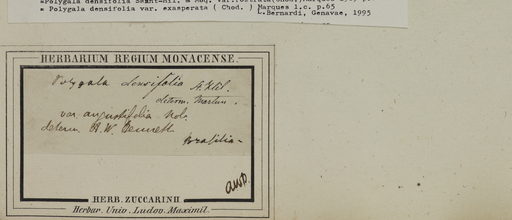 "Polygala densifolia
* Polygala densifolia var. exasperata ( Chod. ) Marques l.c. p.65
L.Bernardi, Genavae, 1995
HERBARIUM REGIUM MONACENSE.
Polygala densifolia St. Hil.
determ. Martius.
var angustifolia
determ. A. W. Bennett
Brasilia-
HERB. ZUCCARINII
Herbar. Univ. Ludov. Maximil.